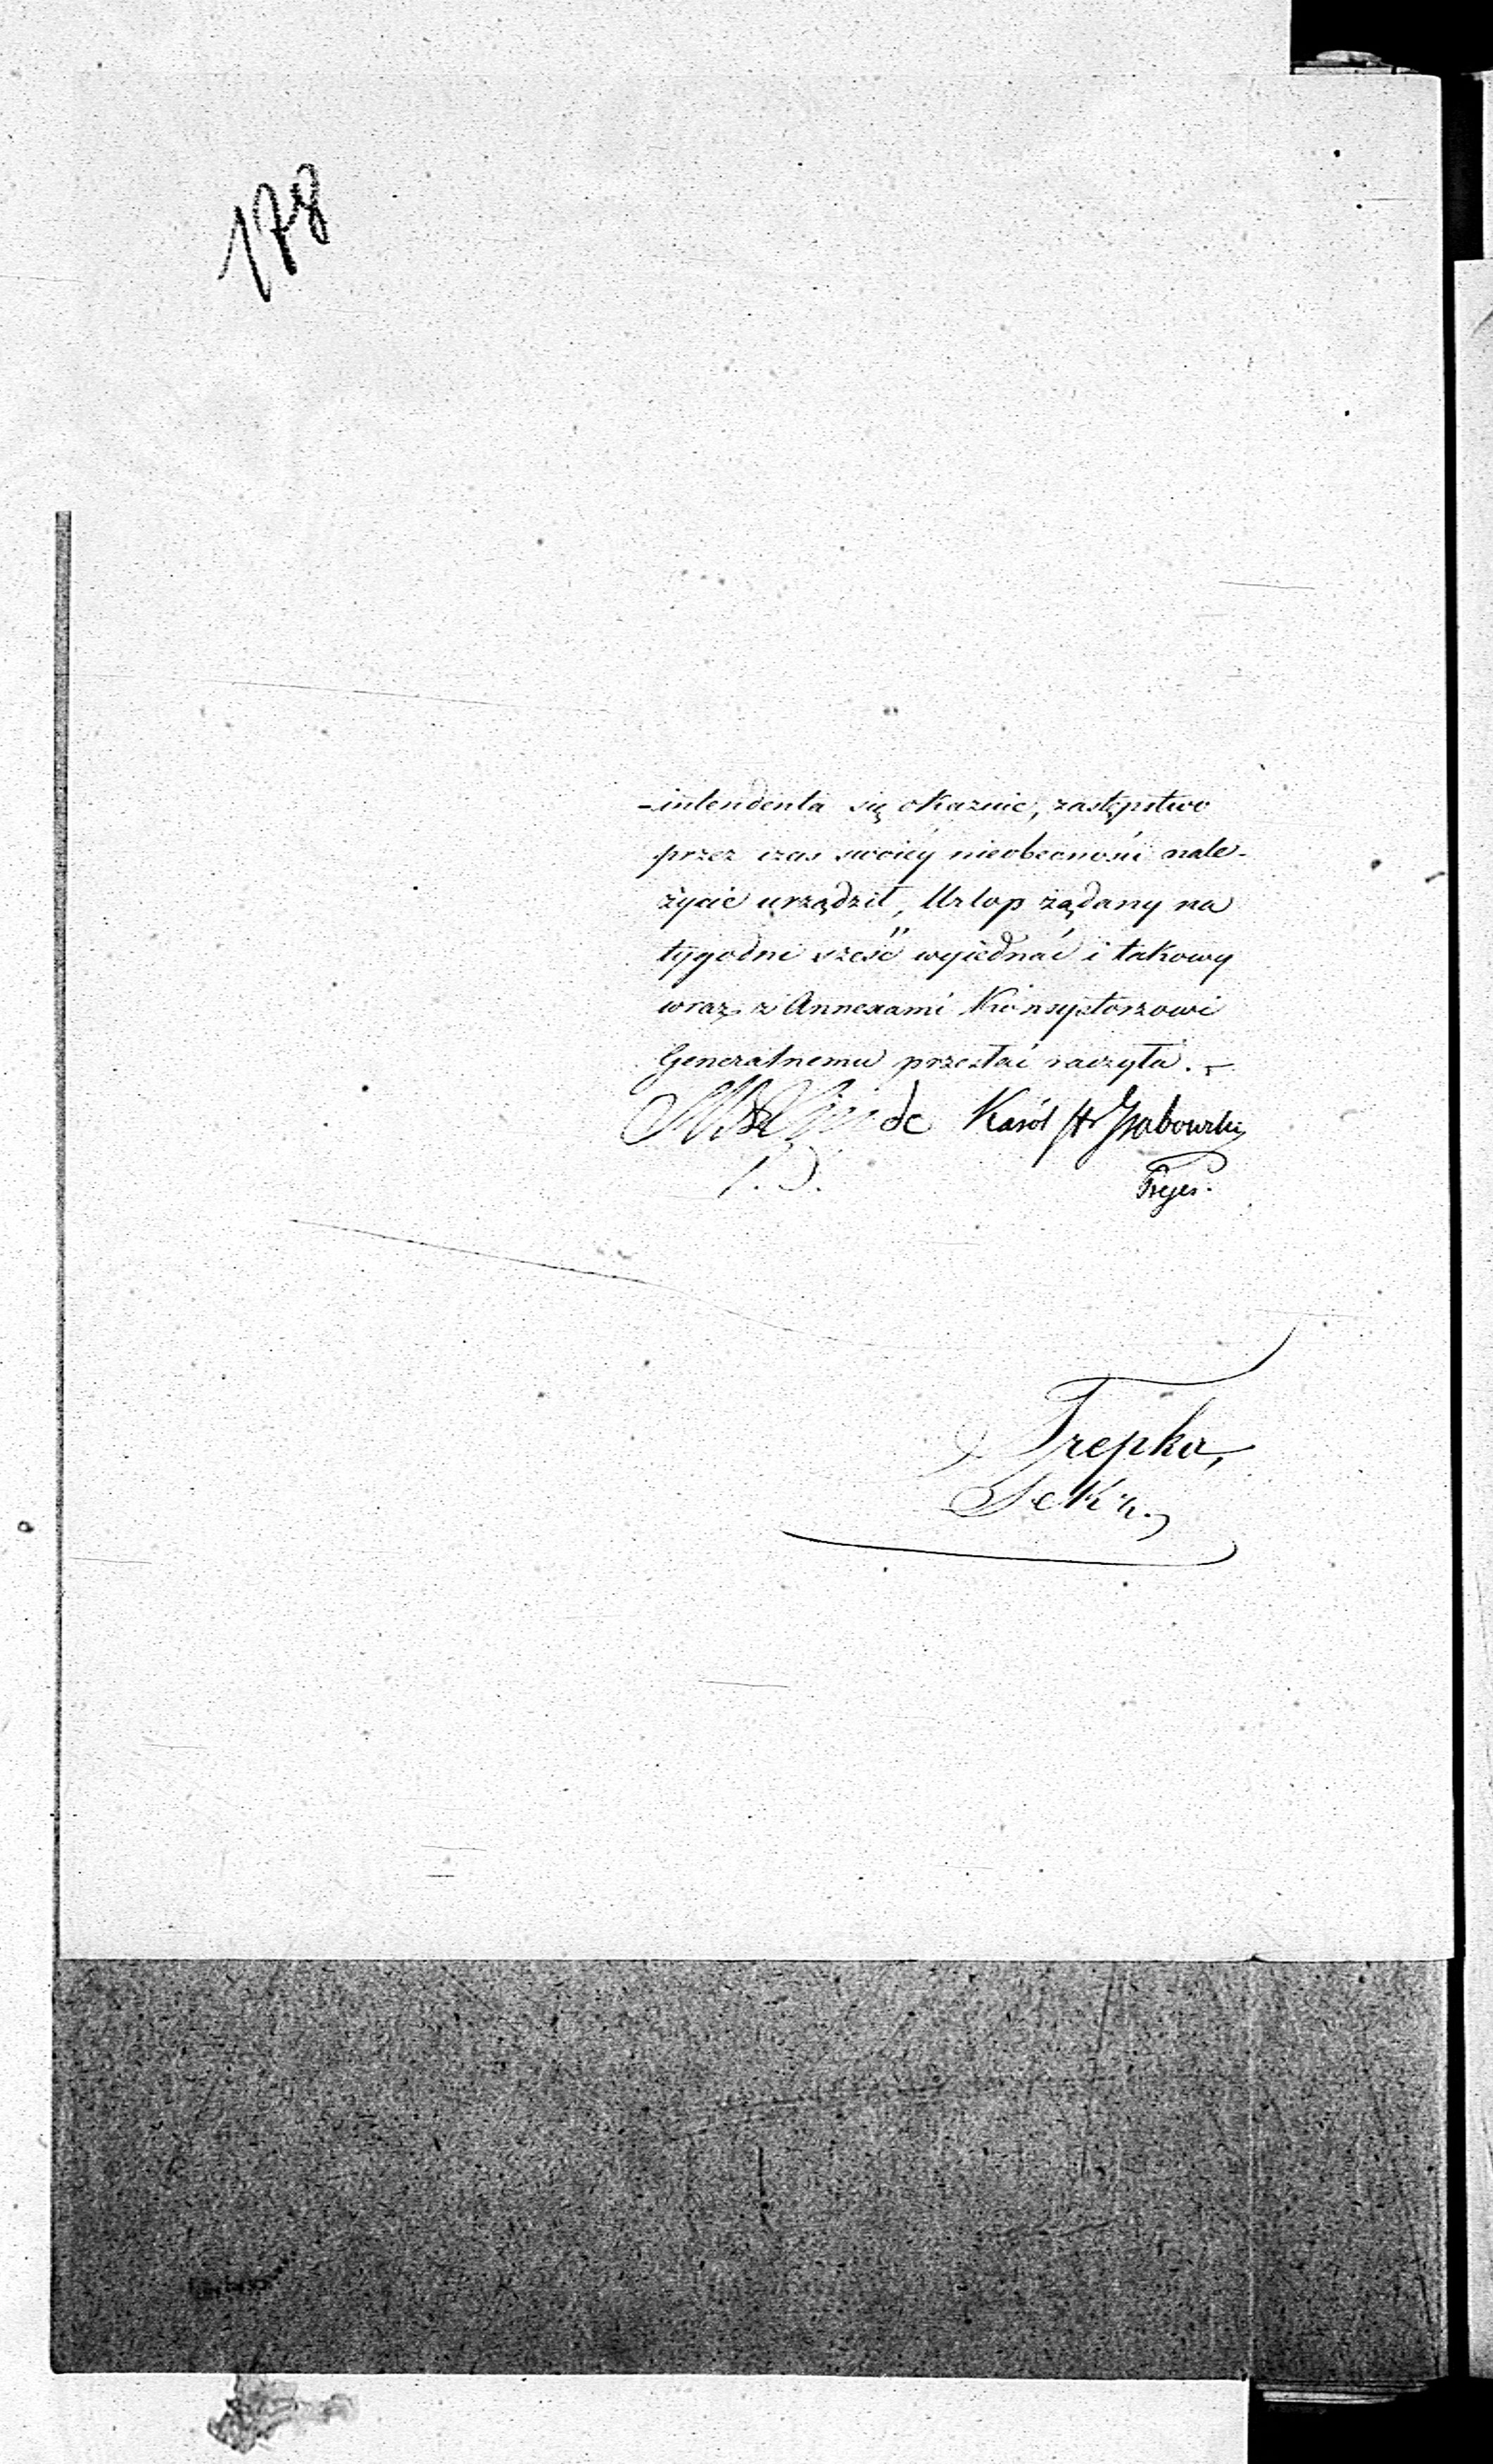 178
-intendenta się okaznie, zastępstwo
przez czas swoiéy nieobecności nale-
życie urządzil, Urlop żądany na
tygodni sześć wyiednać i takowy
wraz z Annexami Konsystorzowi
Generalnemu przesłać raczyła. -
Linde Karól Hr Grabowski
Prezes.
Trepka,
Sekr.